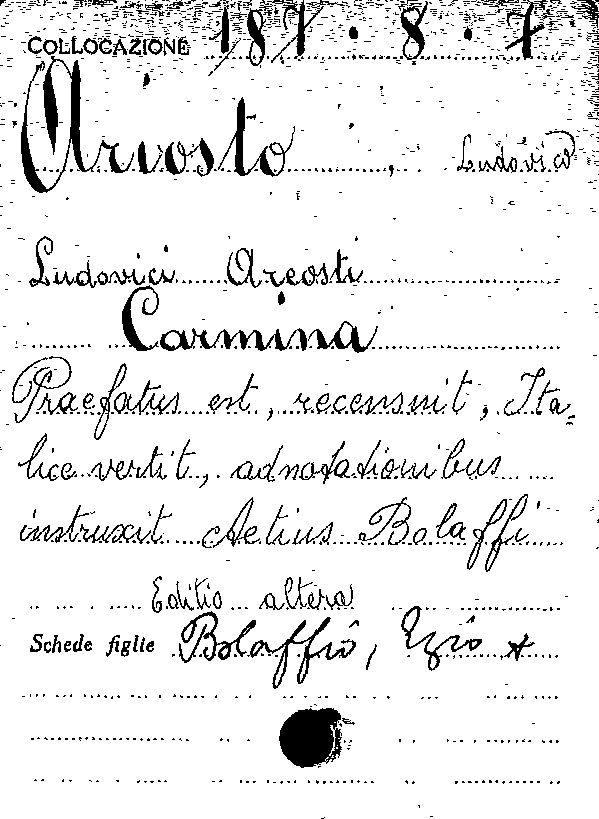 COLLOCAZIONE 187.8.7
Ariosto, Ludovico
Ludovici Areosti
Carmina
Praefatus est, recensuit, Ita=
lice vertit, adnotationibus
instruxit Aetius Bolaffi
Editio altera
Schede figlie Bolaffio, Ezio +